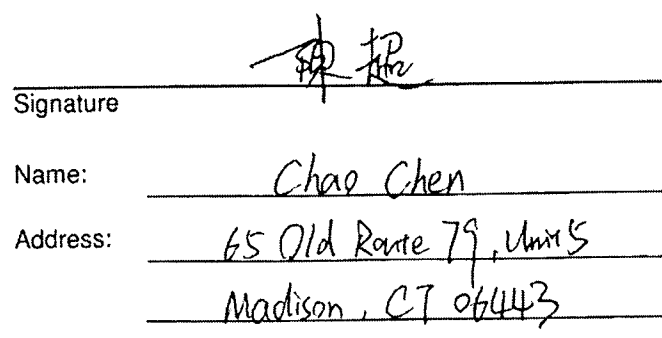 陳超
Signature
Name: Chao Chen
Address: 65 Old Route 79, Unit 5
Madison, CT 06443